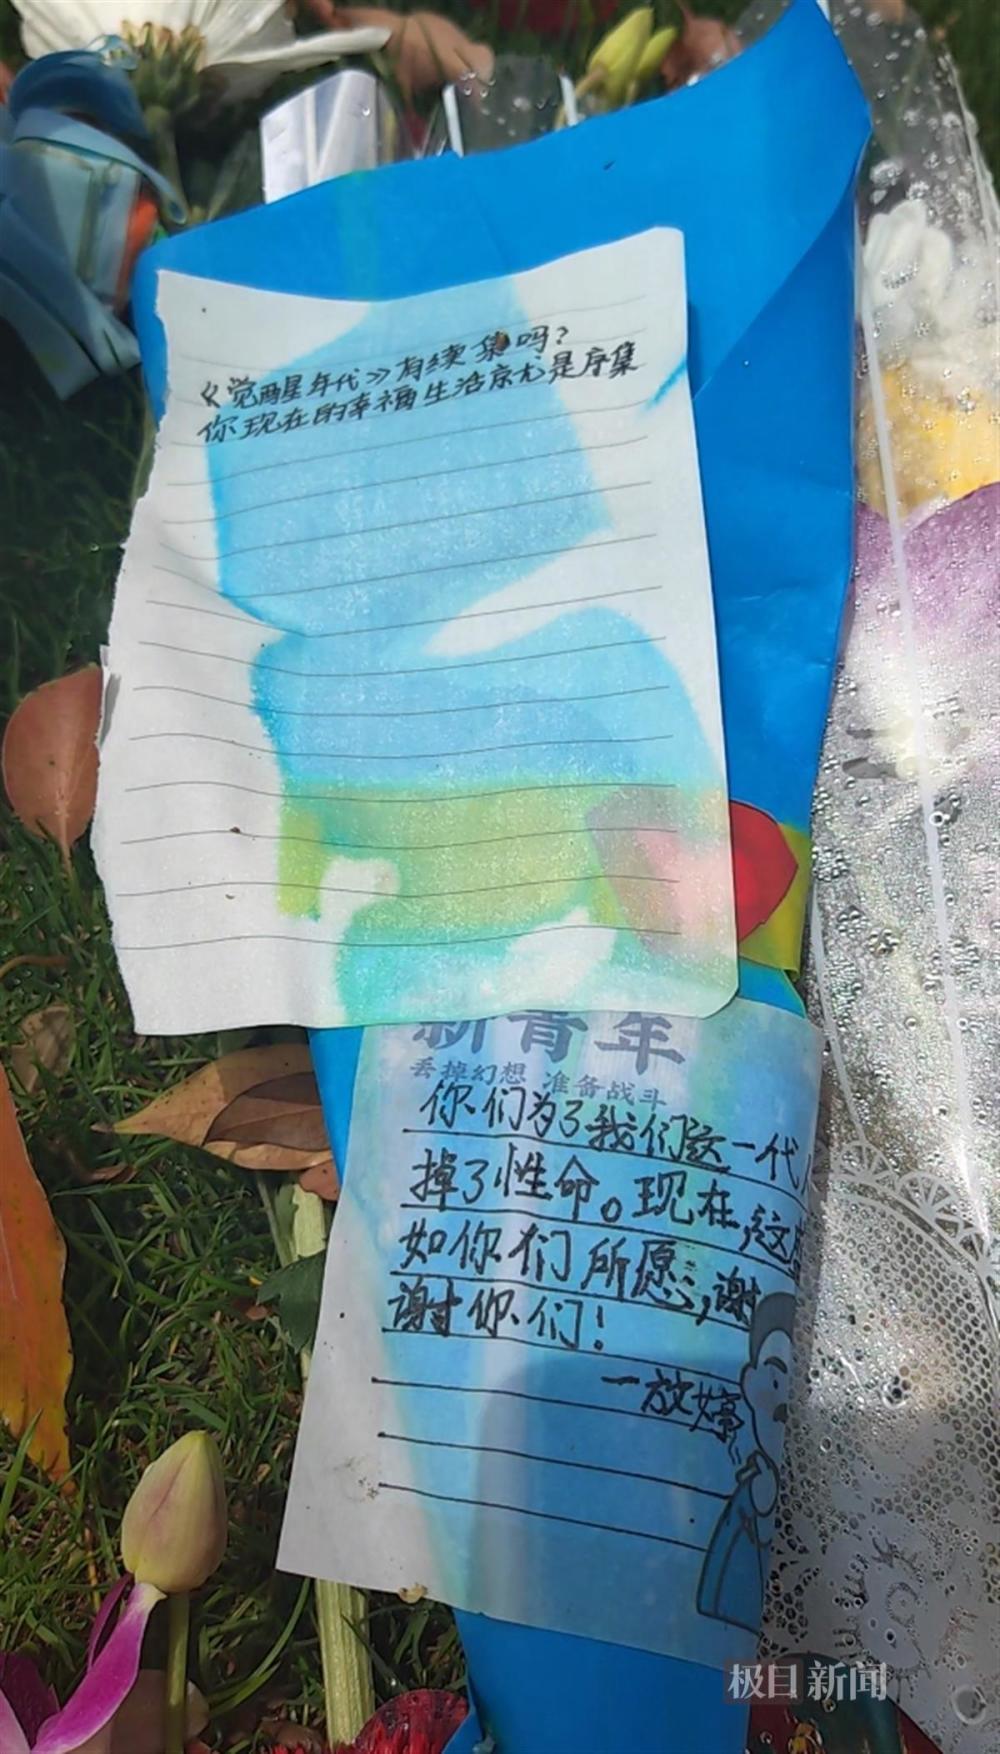 《觉醒年代》有续集吗？
你现在的幸福生活就是序集
新青年
丢掉幻想 准备战斗
你们为了我们这一代
掉了性命。现在，这
如你们所愿，谢
谢你们！
一放婷
极目新闻